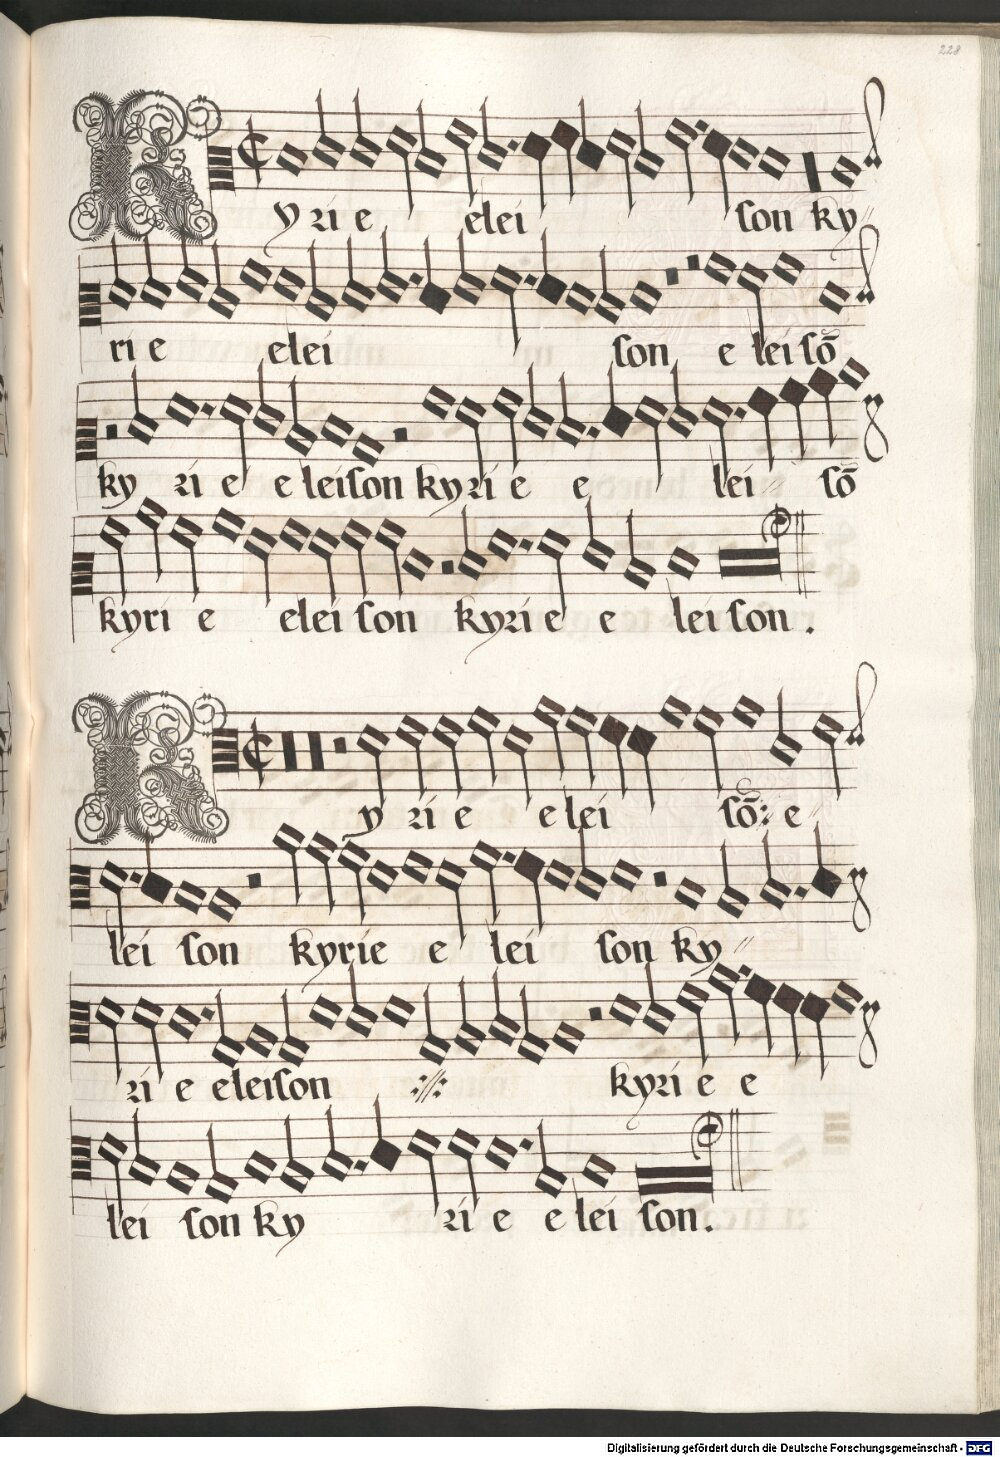 228
Kyrie elei son ky〃
rie elei son e lei sō
ky rie e leison kyrie e lei〃 sō
kyri e elei son kyrie e lei son.
Kyrie e lei sō: e〃
lei son kyrie e lei son ky〃
ri e eleison :〃: kyri e e
lei son ky ri e e lei son.
Digitalisierung gefördert durch die Deutsche Forschungsgemeinschaft - DFG